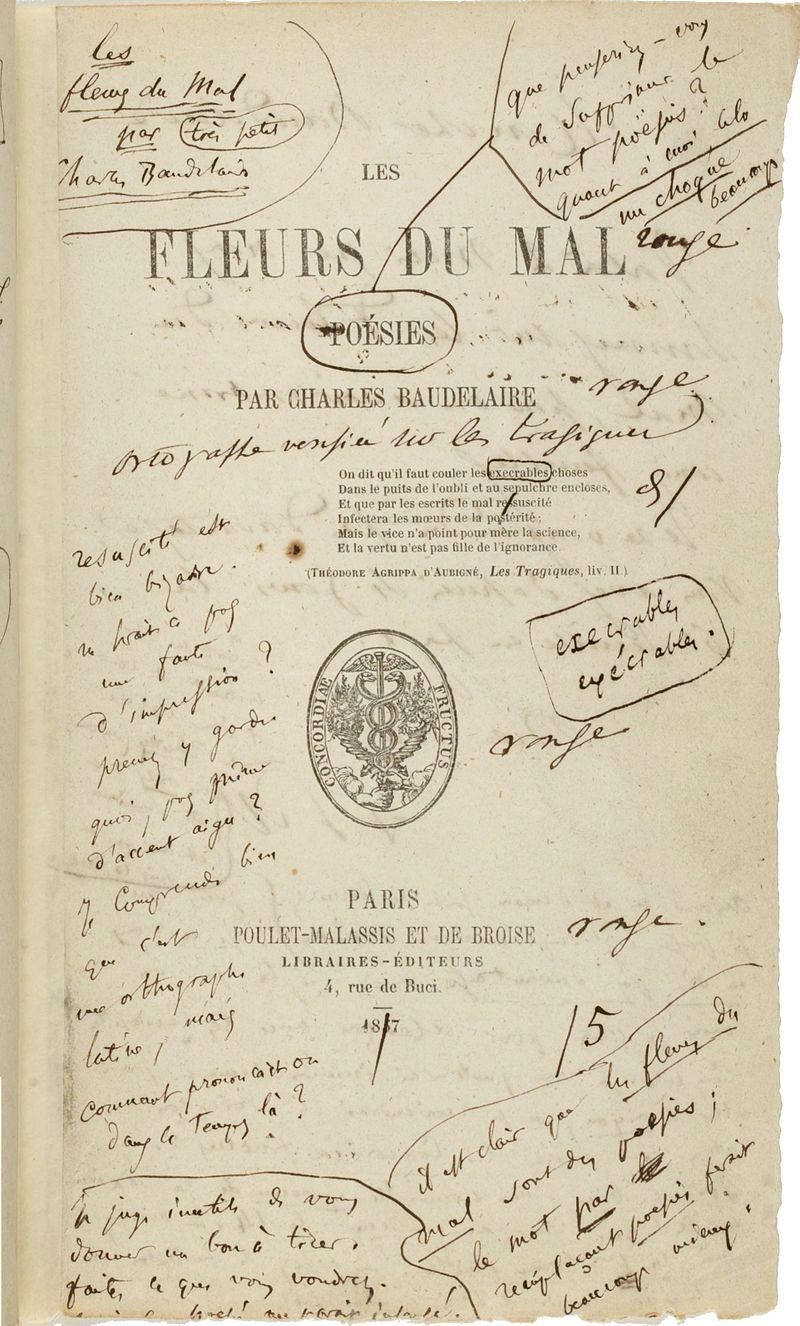 les
fleurs du Mal
par très petit
Charles Baudelaire
que penseriez-vous
de supprimer le
mot poësies ?
quant à moi, cela
me choque
beaucoup
LES
FLEURS DU MAL
rouge
POÉSIES
PAR CHARLES BAUDELAIRE
rouge
ortografe verifiée sur les tragiques
On dit qu'il faut couler les execrables choses
Dans le puits de l'oubli et au sepulchre encloses,
Et que par les escrits le mal resuscité
Infectera les mœurs de la postérité ;
Mais le vice n'a point pour mère la science,
Et la vertu n'est pas fille de l'ignorance.
(THÉODORE AGRIPPA D'AUBIGNÉ, Les Tragiques, liv. II.)
resuscité est
bien bizarre.
ne serait-ce pas
une faute
d'impression ?
prenez y garde.
quoi, pas même
d'accent aigu ?
je comprends bien
que c'est
une orthographe
latine, mais
comment prononçait-on
dans ce temps là ?
execrables
exécrables.
CONCORDIAE FRUCTUS
rouge
PARIS
POULET-MALASSIS ET DE BROISE
rouge.
LIBRAIRES-ÉDITEURS
4, rue de Buci.
1857
/5
il est clair que les fleurs du
mal sont des poësies ;
le mot par
remplaçant poësies ferait
beaucoup mieux.
Je juge inutile de vous
donner un bon à tirer.
faites ce que vous voudrez.